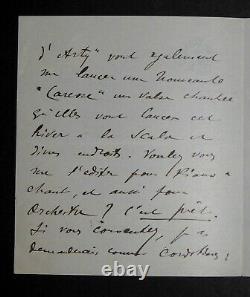 d'Arty" vont également
me lancer une nouveauté
"Caresse" une valse chantée
qu'elles vont lancer cet
hiver à la Scala et
divers endroits. Voulez vous
me l'éditer pour Piano &
chant, et aussi pour
Orchestre ? C'est prêt.
Si vous consentez, je
demanderais comme Conditions :